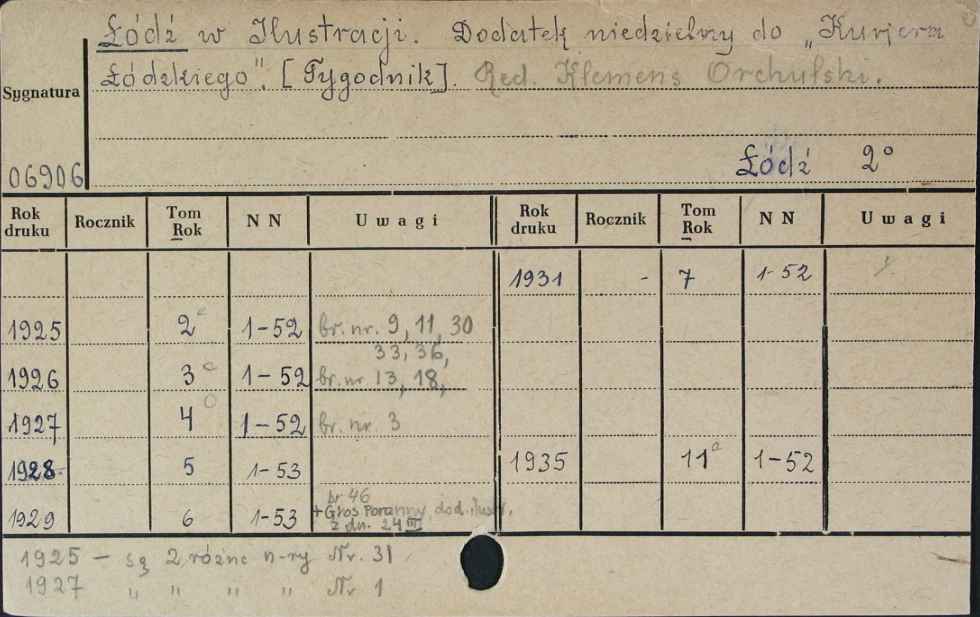 Łódź w Ilustracji. Dodatek niedzielny do „Kurjera
Łódzkiego". [Tygodnik]. Red. Klemens Orchulski.
Sygnatura
06906
Łódź 2°
Rok druku Rocznik Tom Rok NN Uwagi Rok druku Rocznik Tom Rok NN Uwagi
1931 - 7 1-52
1925 2 1-52 br. nr. 9, 11, 30
33, 36,
1926 3 1-52 br. nr 13, 18,
1927 4 1-52 br. nr. 3
1928 5 1-53 1935 11 1-52
br 46
1929 6 1-53 +Głos Poranny dod. ilustr.
z dn. 24 III
1925 – są 2 różne n-ry Nr. 31
1927 " " " " Nr 1